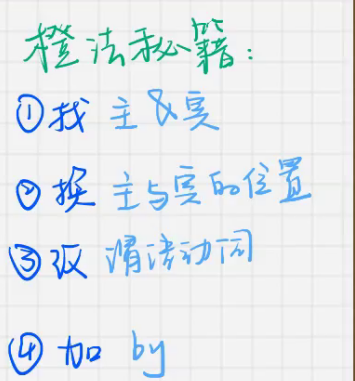 橙法秘籍：
①找 主&宾
②换 主与宾的位置
③改 谓语动词
④加 by